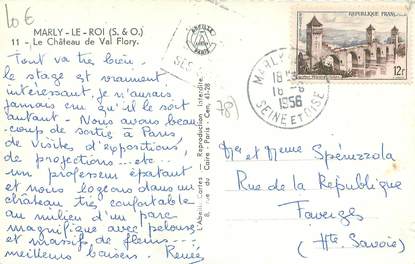 10 €
MARLY - LE - ROI (S. & O.)
11 - Le Château de Val Flory.
Tout va très bien.
le stage est vraiment
intéressant. je n'aurais
jamais cru qu'il le soit
autant - Nous avons beau-
coup de sortie à Paris,
de visites d'expositions,
de projections... etc...
un professeur épatant
et nous logeons dans un
château très confortable
au milieu d'un parc
magnifique avec pelouse
et massifs de fleurs...
meilleurs baisers. Renée
ABEILLE
PARIS
L'Abeille-Cartes - Reproduction Interdite.
8, rue du Caire - Paris - Cen. 41-28
REPUBLIQUE FRANÇAISE
12f
MARLY
18
1956
SEINE ET OISE
(78)
Mr et Mme Spéruzzola
Rue de la République
Faverges
(Hte Savoie)